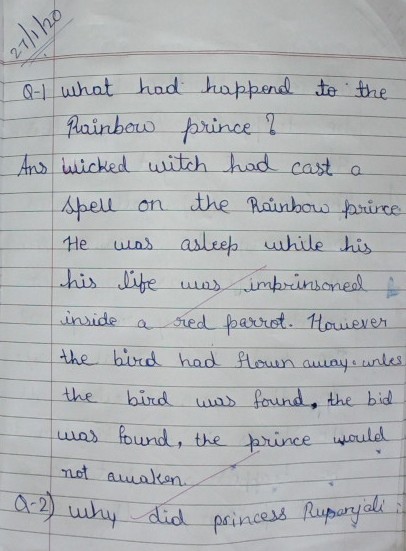 27/1/20
Q-1 what had happend to the
Rainbow prince ?
Ans wicked witch had cast a
spell on the Rainbow prince
He was asleep while his
his life was imprinsoned
inside a red parrot. However
the bird had flown away. unles
the bird was found, the bid
was found, the prince would
not awaken.
Q-2) why did princess Rupanjali